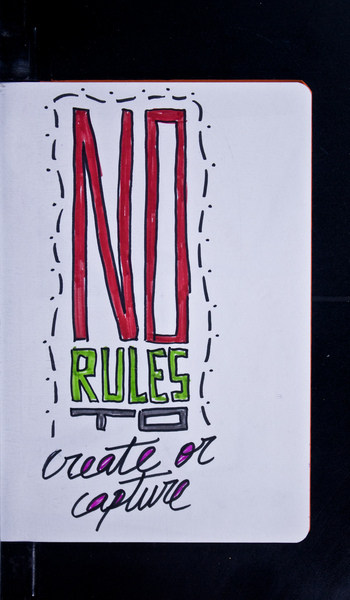 NO
RULES
TO
create or
capture